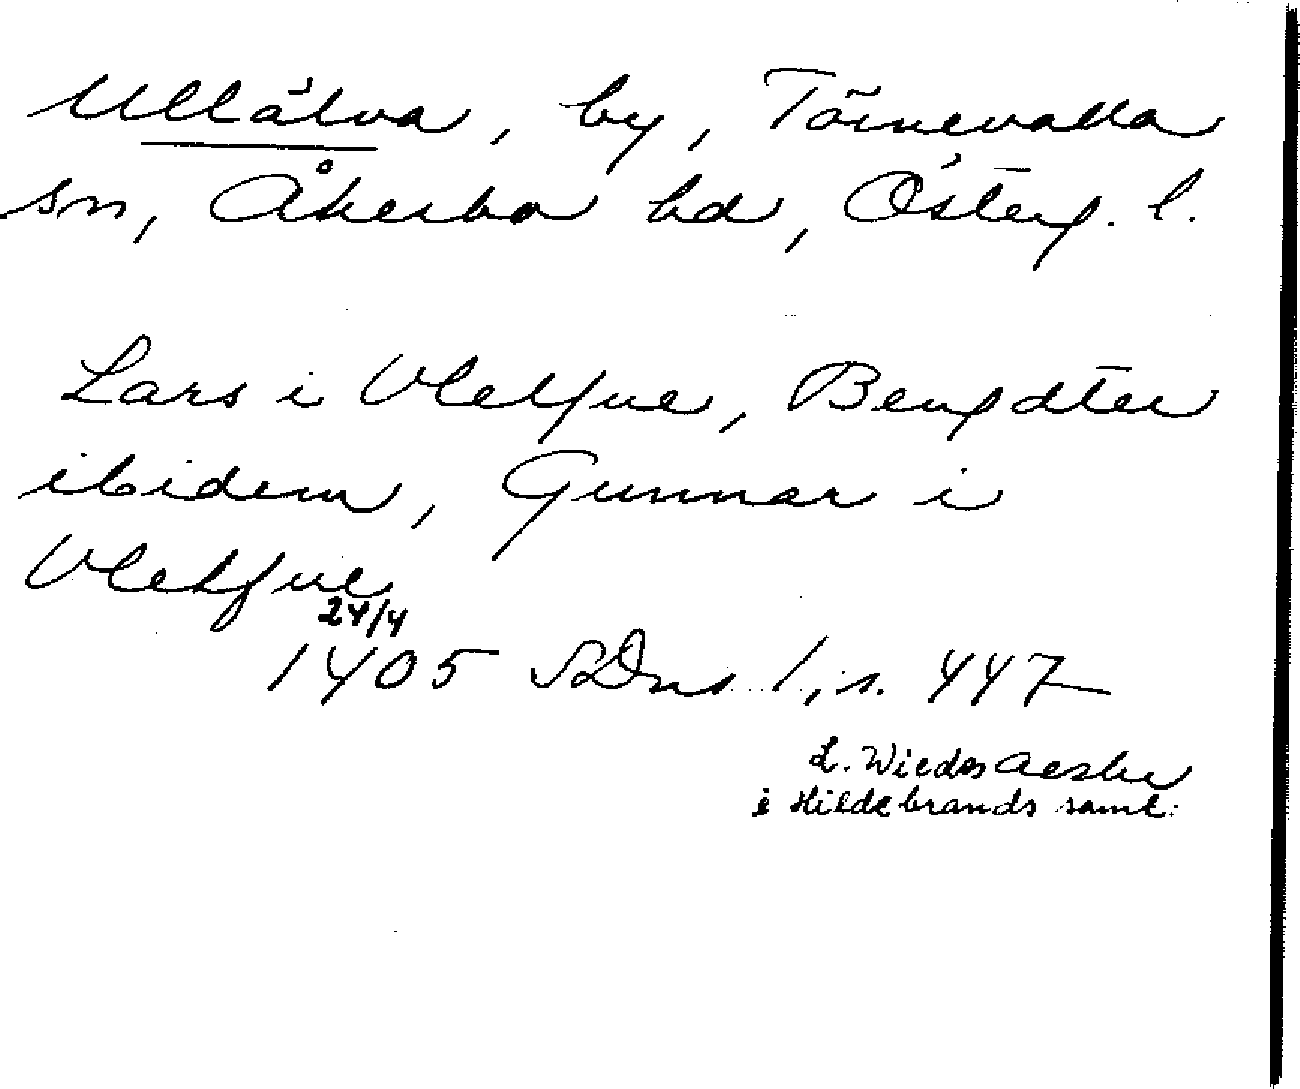 Ullälva, by, Törnevalla
sn, Åkerbo hd, Österg. l.
Lars i Vlelfue, Bengdter
ibidem, Gunnar i
Vlelfue
24/4
1405 SDns 1, s. 447
L. Wiedes
i Hildebrands saml.